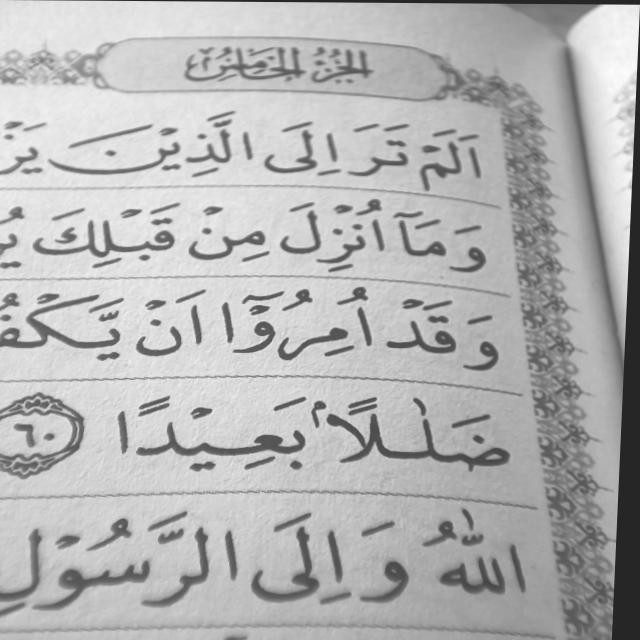 الجزء الخامس
اَلَمْ تَرَ اِلَى الَّذِيْنَ
وَمَآ اُنْزِلَ مِنْ قَبْلِكَ
وَقَدْ اُمِرُوْٓا اَنْ يَّكْفُ
ضَلٰلًاۢ بَعِيْدًا ٦٠
اللّٰهُ وَاِلَى الرَّسُوْلِ